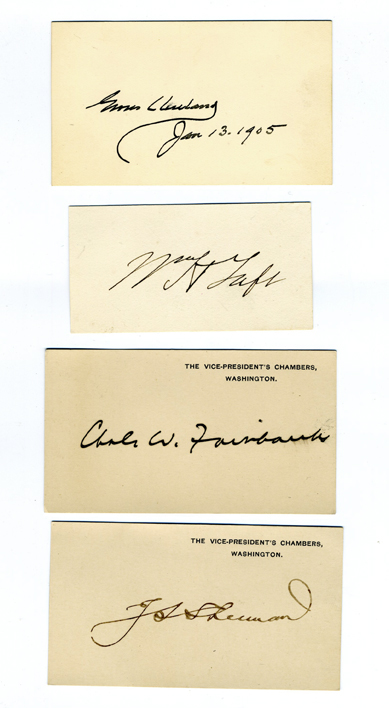 Grover Cleveland
Jan 13. 1905
Wm H Taft
THE VICE-PRESIDENT'S CHAMBERS,
WASHINGTON.
Chas. W. Fairbanks
THE VICE-PRESIDENT'S CHAMBERS,
WASHINGTON.
J S Sherman